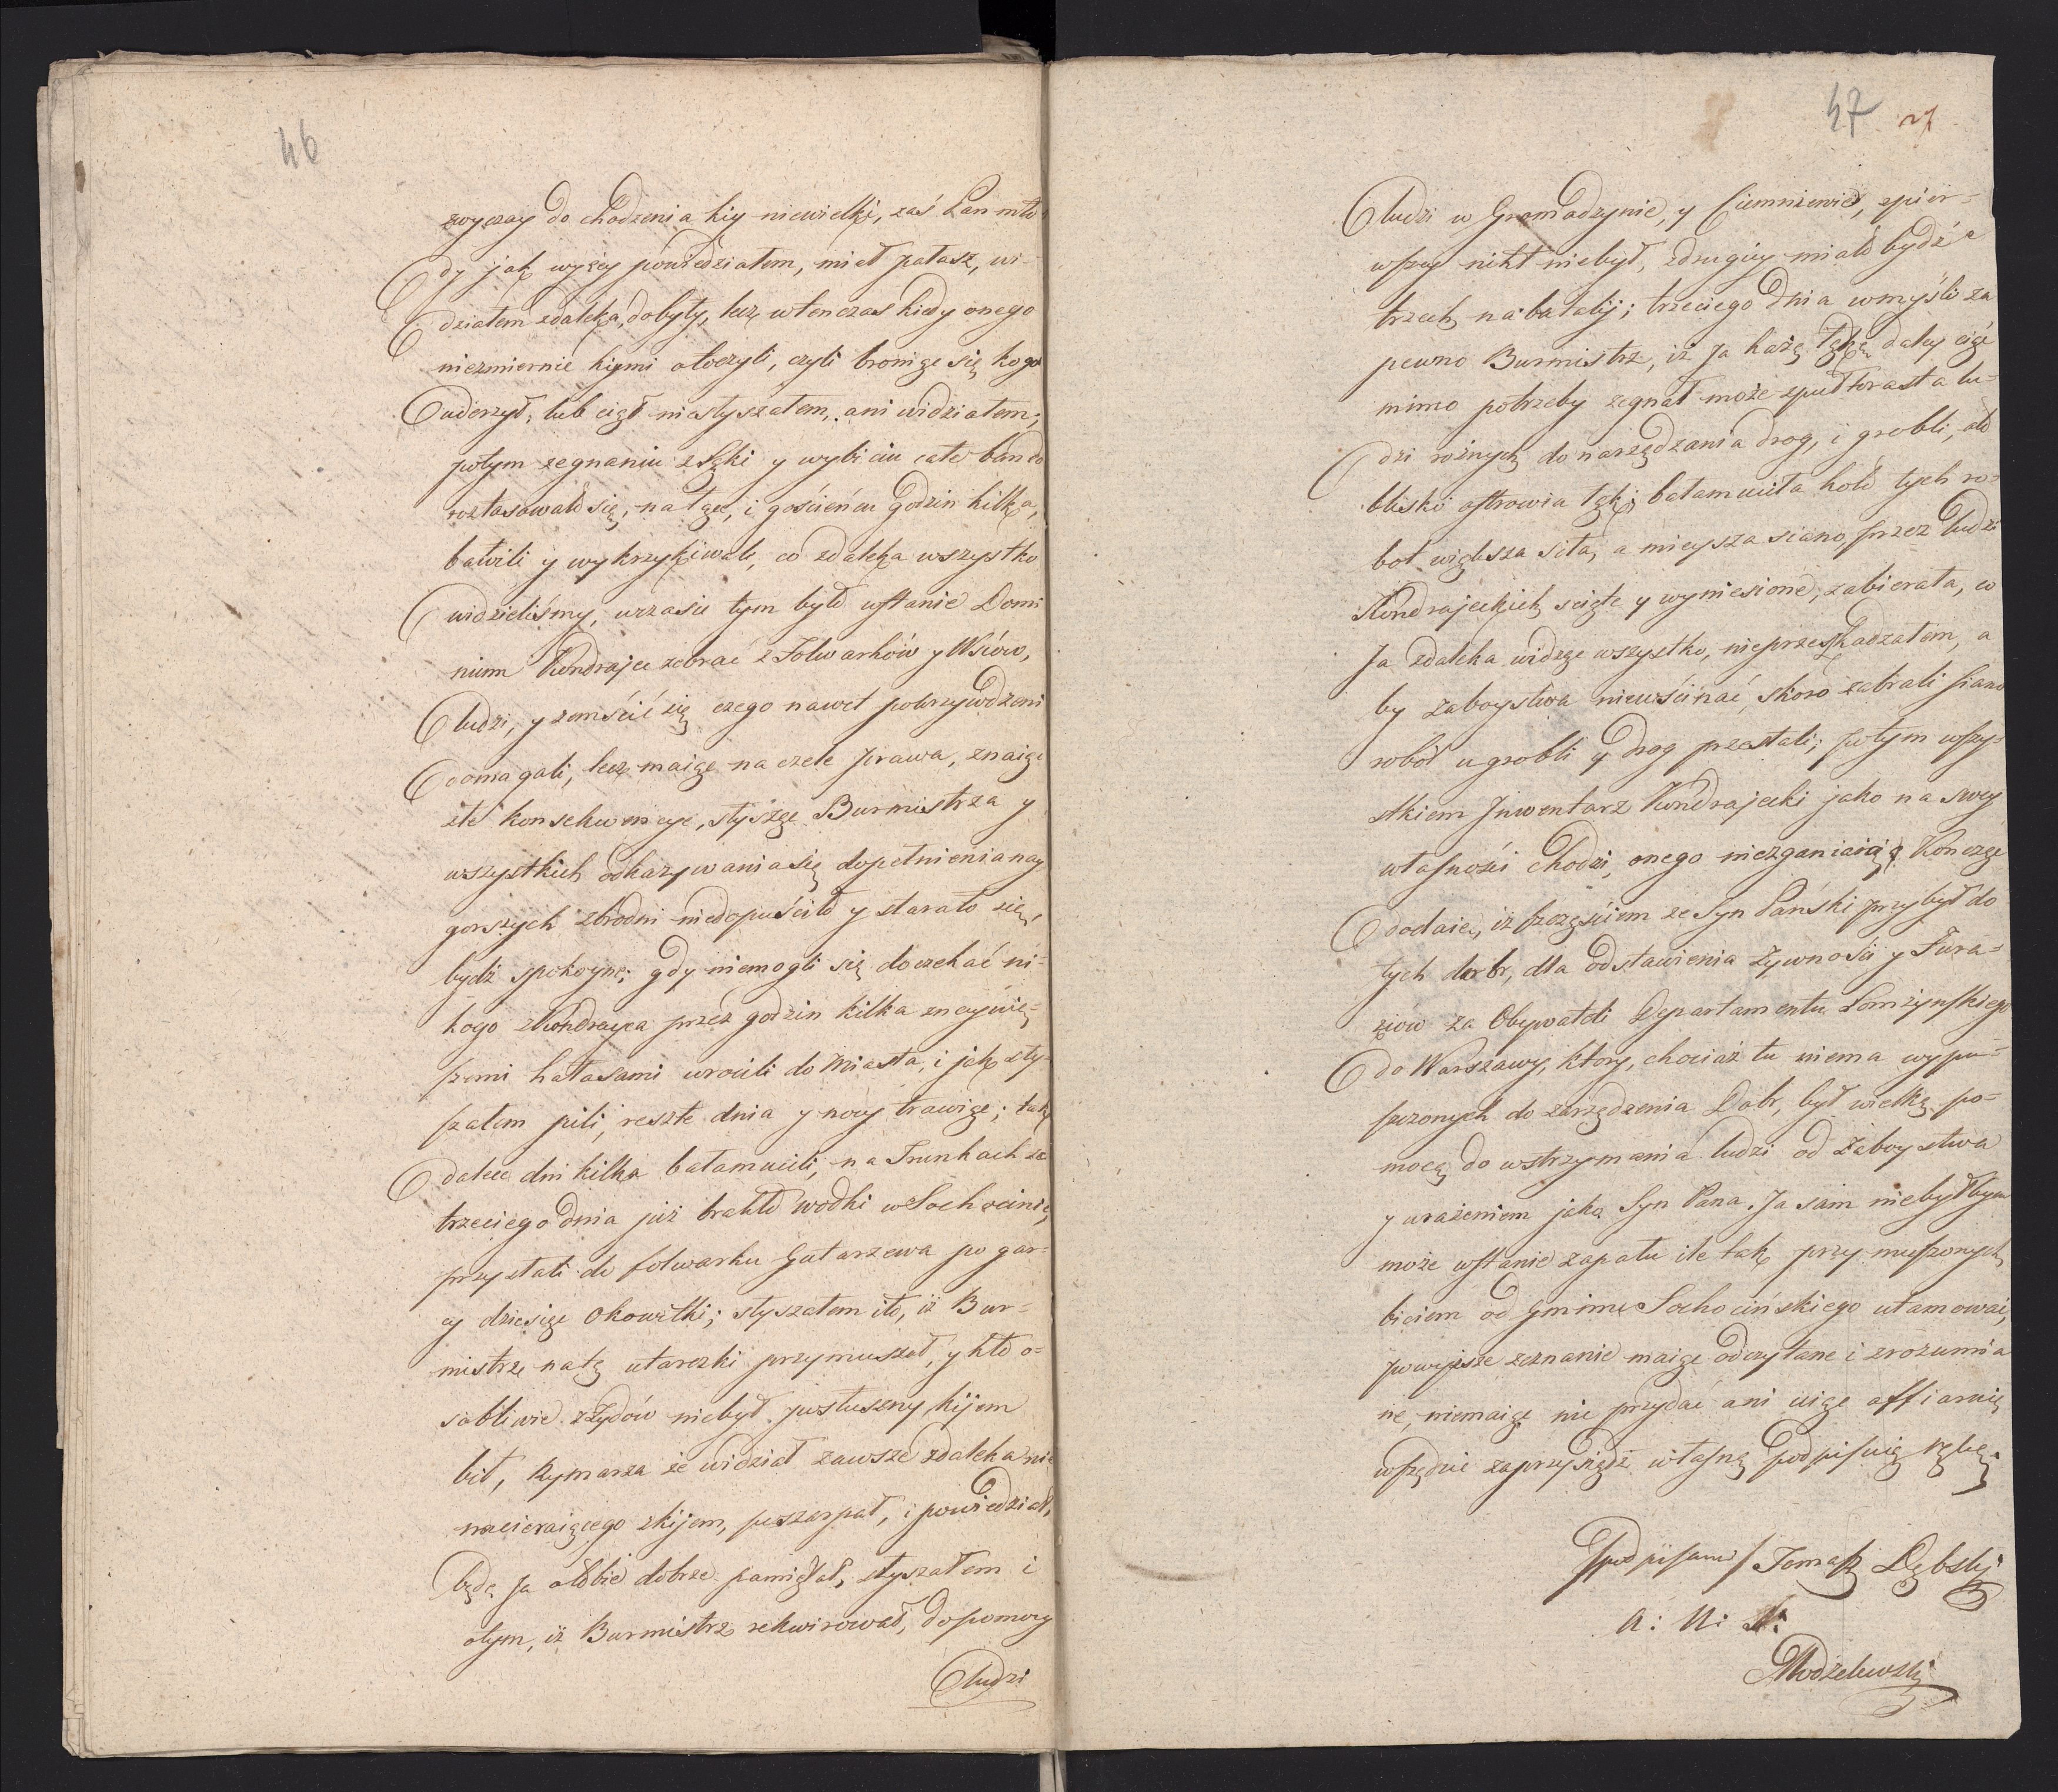 46
zwyczay do chodzenia kiy niewielki, zaś Pan mło
dy jak wyżey powiedziałem, miał pałasz, wi-
działem zdaleka, dobyty, lecz wtenczas kiedy onego
niezmiernie kiymi otoczyli, czyli broniąc się kogo
uderzył, lub ciął niesłyszałem, ani widziałem,
potym zegnaniu z Łąki y wybiciu całe bando
roztasowało się, na łące, i gościeńcu godzin kilka,
bawili y wykrzykiwali, co zdaleka wszystko
widzieliśmy, wczasie tym było wstanie Domi
nium Kondrajec zebrać z Folwarków y Wsiów,
ludzi, y zemścić się czego nawet pokrzywdzeni
domagali, lecz maiąc na czele prawa, znaiąc
złe konsekwencye, słysząc Burmistrza y
wszystkich odkazywania się dopełnienia nay
gorszych zbrodni niedopuściło y starało się,
bydź spokoyne; gdy niemogli się doczekać ni-
kogo z Kondrayca przez godzin kilka znaywię-
szemi hałasami wrócili do Miasta, i jak sły-
szałem pili, resztę dnia y nocy trawiąc; tak
dalece dni kilka bałamucili, na Trunkach że
trzeciego dnia już brakło wodki w Sochocinie,
przysłali do folwarku Gutarzewa po gar-
cy dziesięć Okowitki; słyszałem i to, iż Bur-
mistrz na tę utarczki przymuszał, y kto o-
sobliwie z Żydów niebył posłuszny kijem
bił, Rymarza że widział zawsze zdaleka nie
nacieraiącego z kijem, poszarpał, i powiedział,
będę Ja o Tobie dobrze pamiętał, słyszałem i
o tym, iż Burmistrz rekwirował, do pomocy
ludzi
47 27
ludzi w Gromadzynie, y Ciemniewie, zpier-
wszey nikt niebył, zdrugiey miało bydź
trzech na batalij; trzeciego dnia wmyśli za
pewno Burmistrz, iż Ja każę Łąkę daley ciąć
mimo potrzeby zegnał może zpułtorasta lu-
dzi rożnych do narządzania drog, i grobli, ale
blisko ostrowia łąki bałamuciła koło tych ro-
bot większa siła, a mieysza siano, przez ludzi
Kondrajeckich ścięte y wyniesione, zabierała, co
Ja zdaleka widząc wszystko, nieprzeszkadzałem, a
by zaboystwa nieuścinać, skoro zabrali siano
robot u grobli y drog przestali; potym wszy-
stkiem Jnwentarz Kondrajecki jako na swey
własności chodzi, onego niezganiaią. Kończąc
dodaie, iż szczęściem że Syn Pański przybył do
tych dobr, dla odstawienia żywności y Fura-
żiow za Obywateli Departamentu Łomżynskiego
do Warszawy, ktory, chociaż tu niema wypu-
szczonych do zarządzenia Dobr, był wielką po-
mocą do wstrzymania ludzi od Zaboystwa
y urażeniem jako Syn Pana. Ja sam niebyłbym
może wstanie zapału ile tak przymuszonych
biciem od gminu Sochocińskiego utamować,
powyższe zeznanie maiąc odczytane i zrozumia
ne, niemaiąc nic przydać ani uiąć affirmuię
wszędzie zaprzysiądz własną podpisuię ręką.
/podpisano/ Tomasz Dębski
Modzelewski